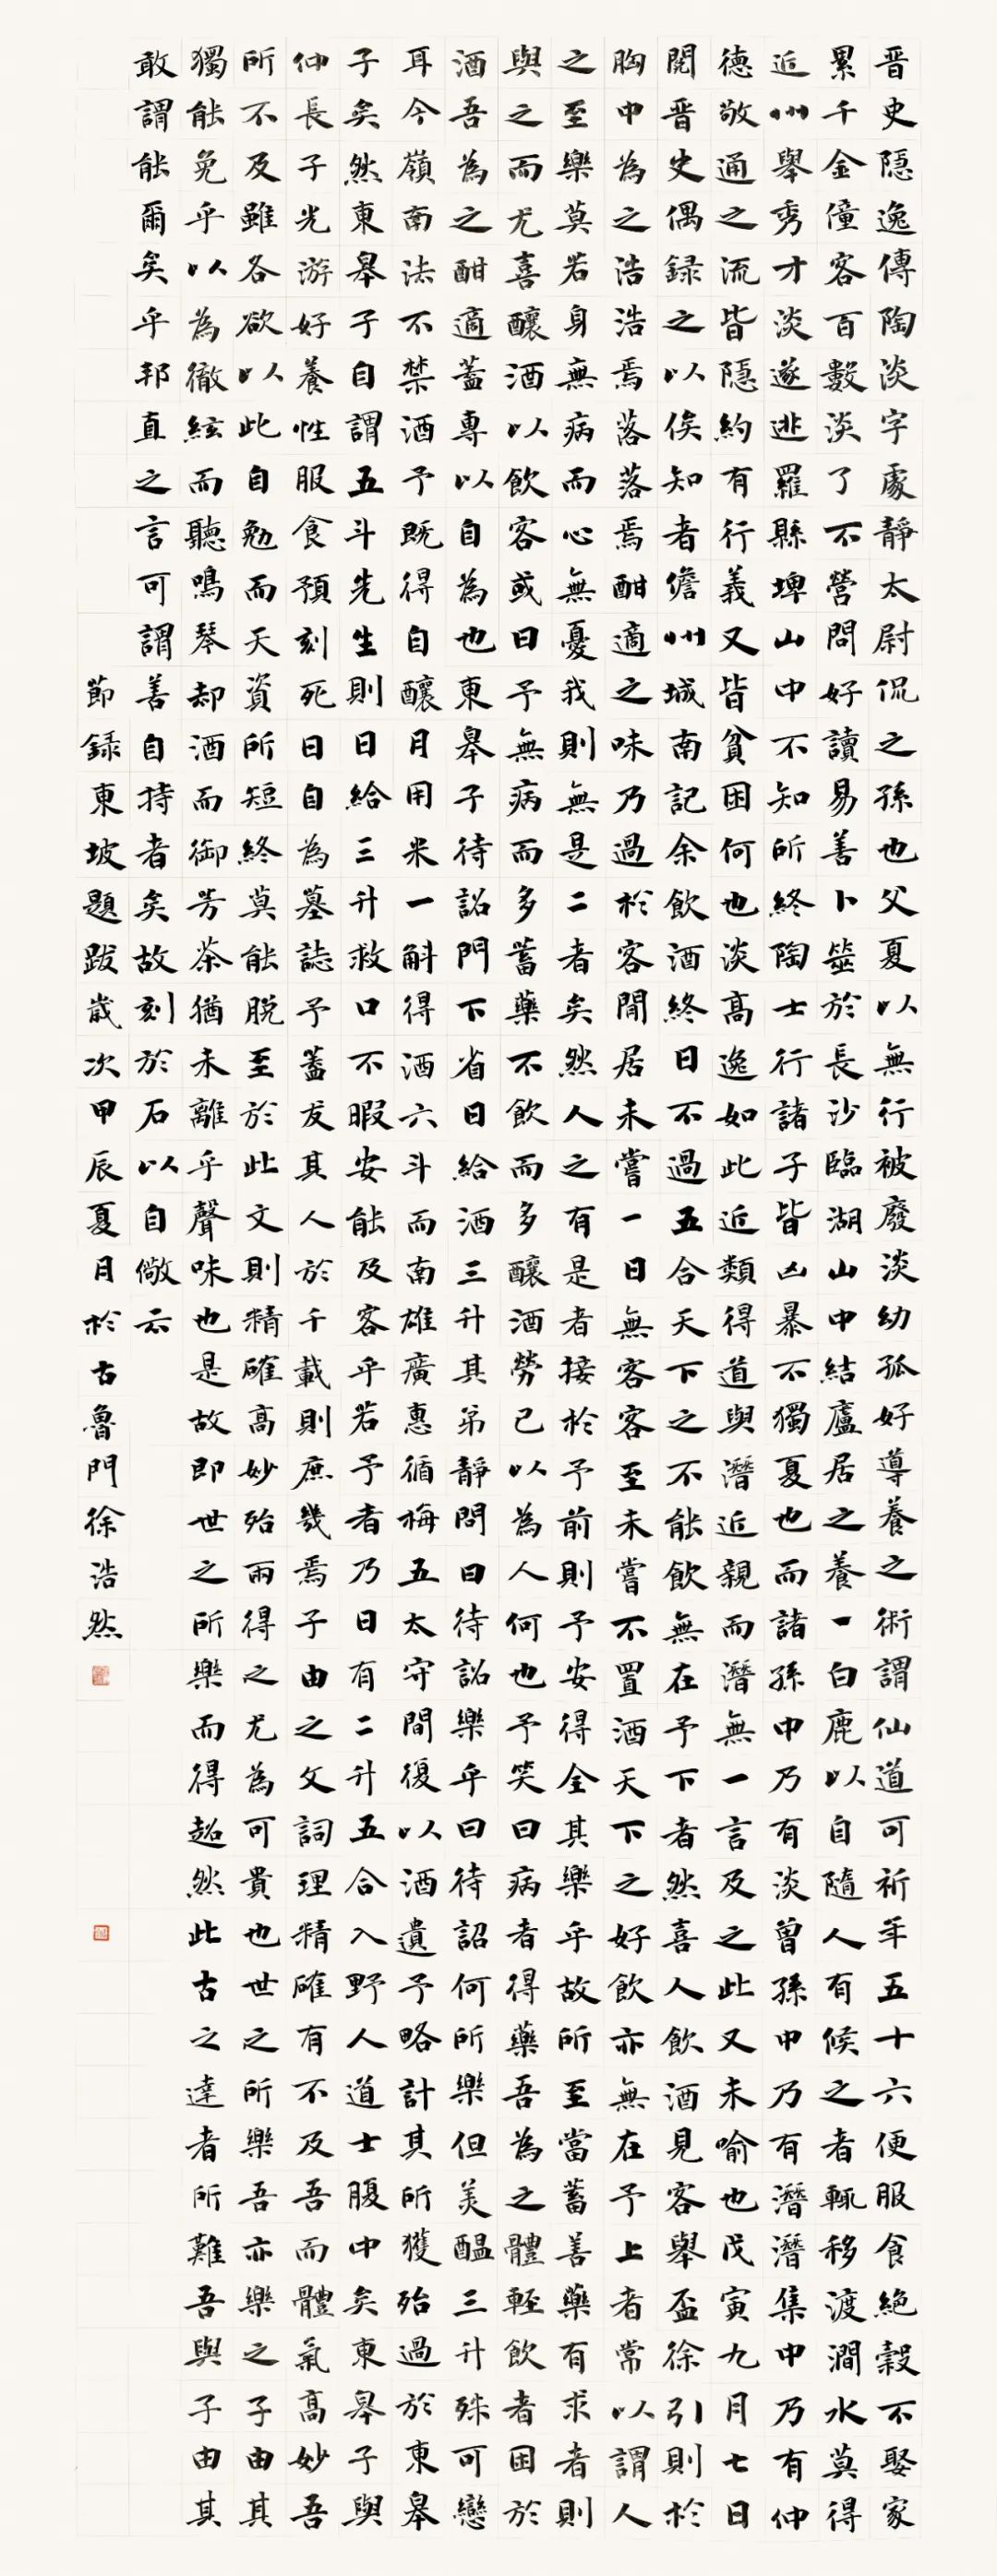 晋史隱逸傳陶淡字處靜太尉侃之孫也父夏以無行被廢淡幼孤好導養之術謂仙道可祈年五十六便服食絕穀不娶家
累千金僮客百數淡了不營問好讀易善卜筮於長沙臨湖山中結廬居之養一白鹿以自隨人有候之者輒移渡澗水莫得
近州舉秀才淡遂逃羅縣埤山中不知所終陶士行諸子皆凶暴不獨夏也而諸孫中乃有淡曾孫中乃有潛潛集中乃有仲
德敬通之流皆隱約有行義又皆貧困何也淡高逸如此近類得道與潛近親而潛無一言及之此又未喻也戊寅九月七日
閱晋史偶録之以俟知者儋州城南記余飲酒終日不過五合天下之不能飲無在予下者然喜人飲酒見客舉盃徐引則於
胸中為之浩浩焉落落焉酣適之味乃過於客閒居未嘗一日無客客至未嘗不置酒天下之好飲亦無在予上者常以謂人
之至樂莫若身無病而心無憂我則無是二者矣然人之有是者接於予前則予安得全其樂乎故所至當蓄善藥有求者則
與之而尤喜釀酒以飲客或曰予無病而多蓄藥不飲而多釀酒勞己以為人何也予笑曰病者得藥吾為之體輕飲者困於
酒吾為之酣適蓋專以自為也東皋子待詔門下省日給酒三升其弟靜問曰待詔樂乎曰待詔何所樂但美醞三升殊可戀
耳今嶺南法不禁酒予既得自釀月用米一斛得酒六斗而南雄廣惠循梅五太守間復以酒遺予略計其所獲殆過於東皋
子矣然東皋子自謂五斗先生則日給三升救口不暇安能及客乎若予者乃日有二升五合入野人道士腹中矣東皋子與
仲長子光游好養性服食預刻死日自為墓誌予蓋友其人於千載則庶幾焉子由之文詞理精確有不及吾而體氣高妙吾
所不及雖各欲以此自勉而天資所短終莫能脫至於此文則精確高妙殆兩得之尤為可貴也世之所樂吾亦樂之子由其
獨能免乎以為徹絃而聽鳴琴却酒而御芳茶猶未離乎聲味也是故即世之所樂而得超然此古之達者所難吾與子由其
敢謂能爾矣乎邦直之言可謂善自持者矣故刻於石以自儆云
節録東坡題跋歲次甲辰夏月於古魯門徐浩然